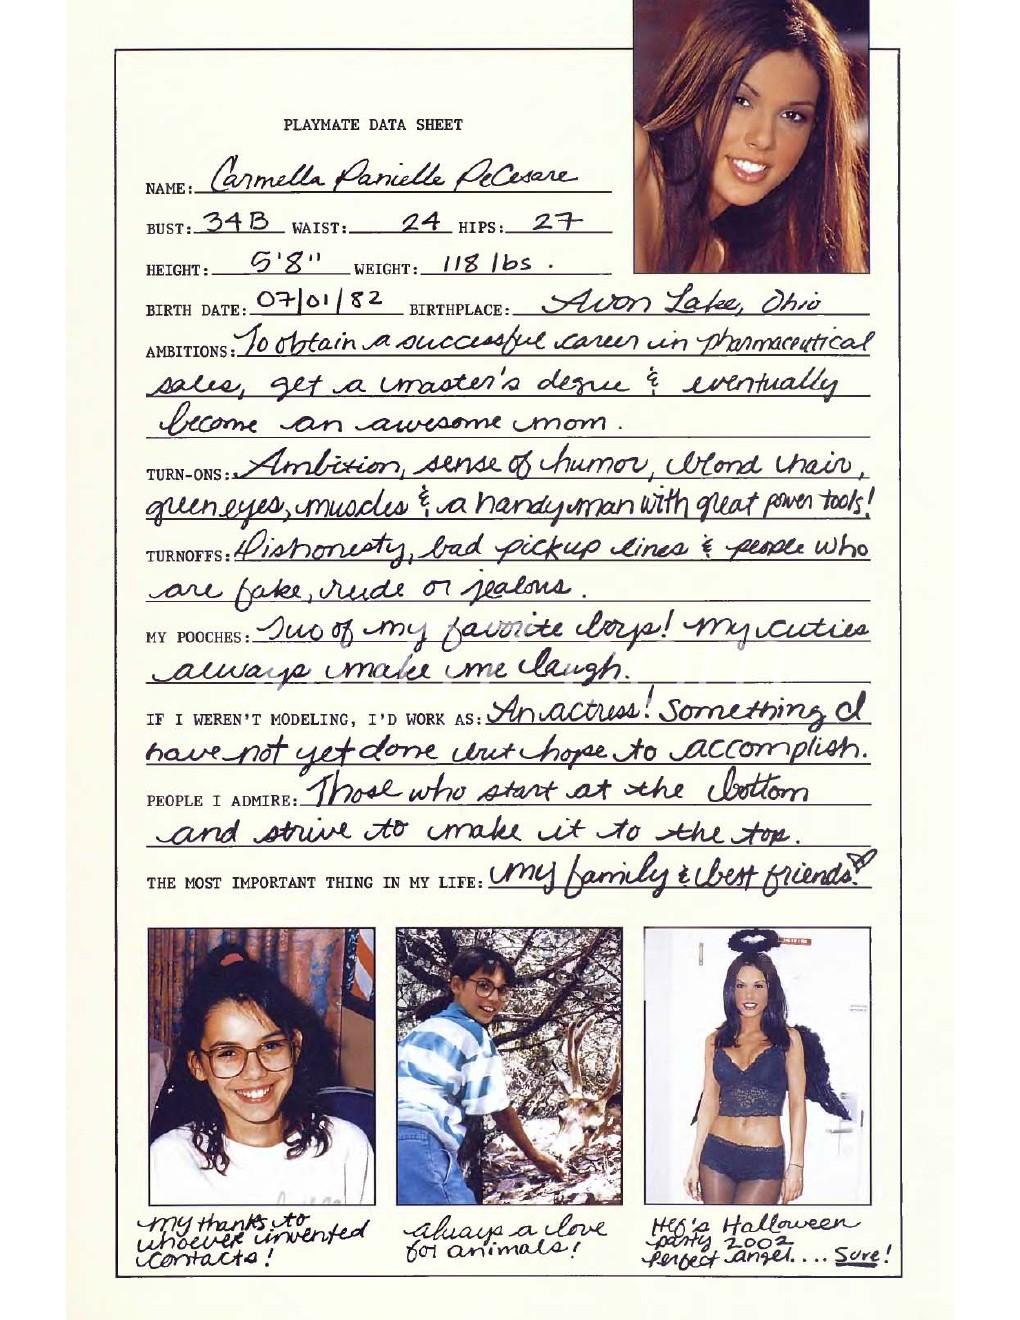 PLAYMATE DATA SHEET
NAME: Carmella Danielle DeCesare
BUST: 34B WAIST: 24 HIPS: 27
HEIGHT: 5'8" WEIGHT: 118 lbs.
BIRTH DATE: 07/01/82 BIRTHPLACE: Avon Lake, Ohio
AMBITIONS: To obtain a successful career in pharmaceutical
sales, get a master's degree & eventually
become an awesome mom.
TURN-ONS: Ambition, sense of humor, blond hair,
green eyes, muscles & a handyman with great power tools!
TURNOFFS: Dishonesty, bad pickup lines & people who
are fake, rude or jealous.
MY POOCHES: Two of my favorite boys! My cuties
always make me laugh.
IF I WEREN'T MODELING, I'D WORK AS: An actress! Something I
have not yet done but hope to accomplish.
PEOPLE I ADMIRE: Those who start at the bottom
and strive to make it to the top.
THE MOST IMPORTANT THING IN MY LIFE: My family & best friends!
My thanks to
whoever invented
contacts!
always a love
for animals!
Hef's Halloween
party 2002
Perfect angel.... Sure!